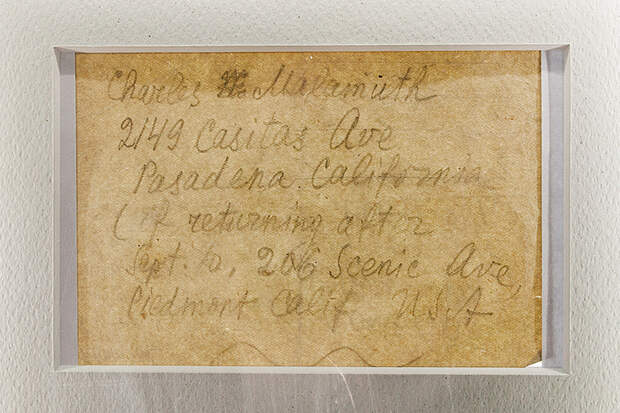 Charles Malamuth
2149 Casitas Ave
Pasadena California
(if returning after
Sept. 10, 206 Scenic Ave,
Piedmont Calif U.S.A